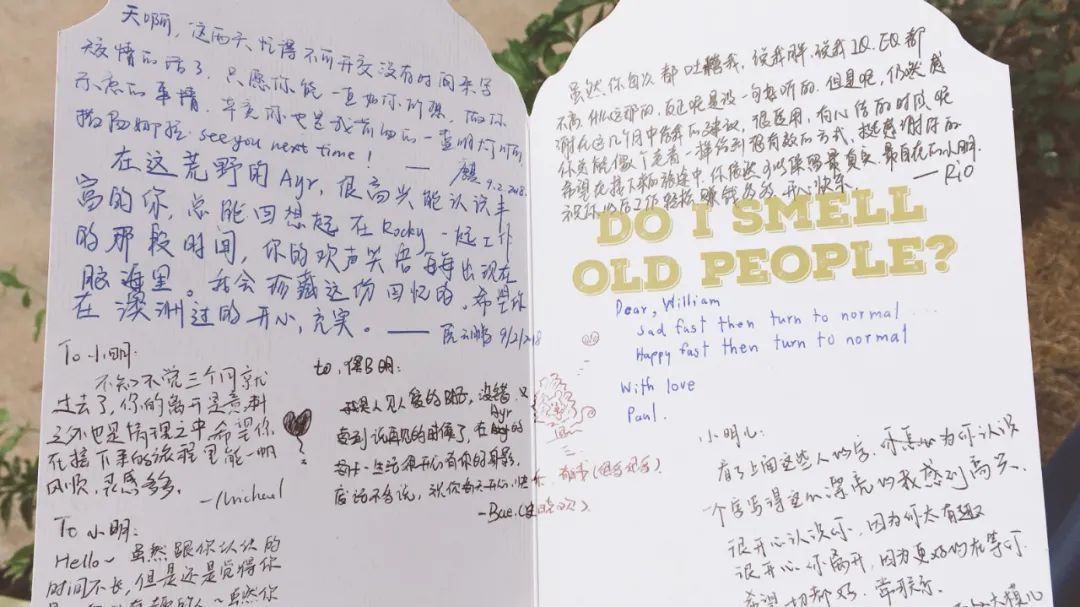 天啊，这两天忙得不可开交没有时间来写
矫情的话了，只愿你能一直如你所愿，做你
乐意的事情，毕竟你也是我前面的一盏明灯啊啊，
撒扬娜拉. see you next time！
—— 麒 9.2.2018.
在这荒野的Ayr，很高兴能认识丰
富的你，总能回想起在Rocky一起工作
的那段时间，你的欢声笑语每每出现在
脑海里。我会珍藏这份回忆的。希望你
在澳洲过的开心，充实。—— 9/2/2018
To 小明：
不知不觉三个月就
过去了，你的离开是意料
之外也是情理之中，希望你
在接下来的旅程里能一帆
风顺，灵感多多。
—/Micheal
To 小明：
Hello~ 虽然跟你认识的
时间不长，但是还是觉得你
to, 傻B明：
我是人见人爱的Bae，没错，又
要到说再见的时候了，在Ayr的
每一生活很开心有你的身影，
废话不多说，祝你每天开心，快
—Bae.
虽然你每次都吐糟我，说我胖，说我IQ、EQ都
不高什么这那的，反正呢是没一句好听的. 但是呢，仍然感
谢在这几个月中给我的建议，很受用，有心结的时候呢
你总能像个老者一样给到很有效的方式，挺感谢你的
希望在接下来的旅途中，你依然可以保留最真实、最自在的小明.
祝你以后工作轻松赚钱多多，开心快乐.
—— Rio
DO I SMELL
OLD PEOPLE?
Dear, William
Sad fast then turn to normal ...
Happy fast then turn to normal
With love
Paul.
小明儿：
看了上面这些人的字，你真心为可认识
一个字写得这么漂亮的我感到高兴.
很开心认识你，因为你太有趣
很开心你离开，因为更好的在等你
希望一切都好，常联系.